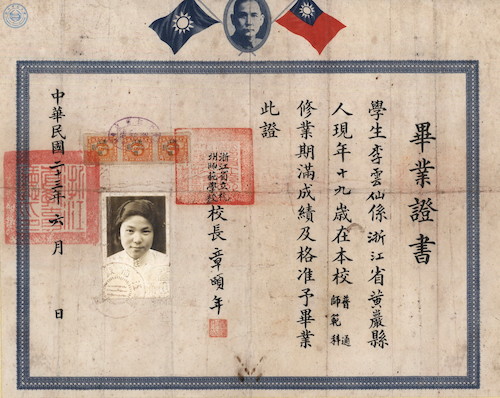 畢業證書
學生李雲仙係浙江省黃巖縣
人現年十九歲在本校普通師範科
修業期滿成績及格准予畢業
此證
浙江省立杭州師範學校校長章頤年
中華民國二十三年六月 日